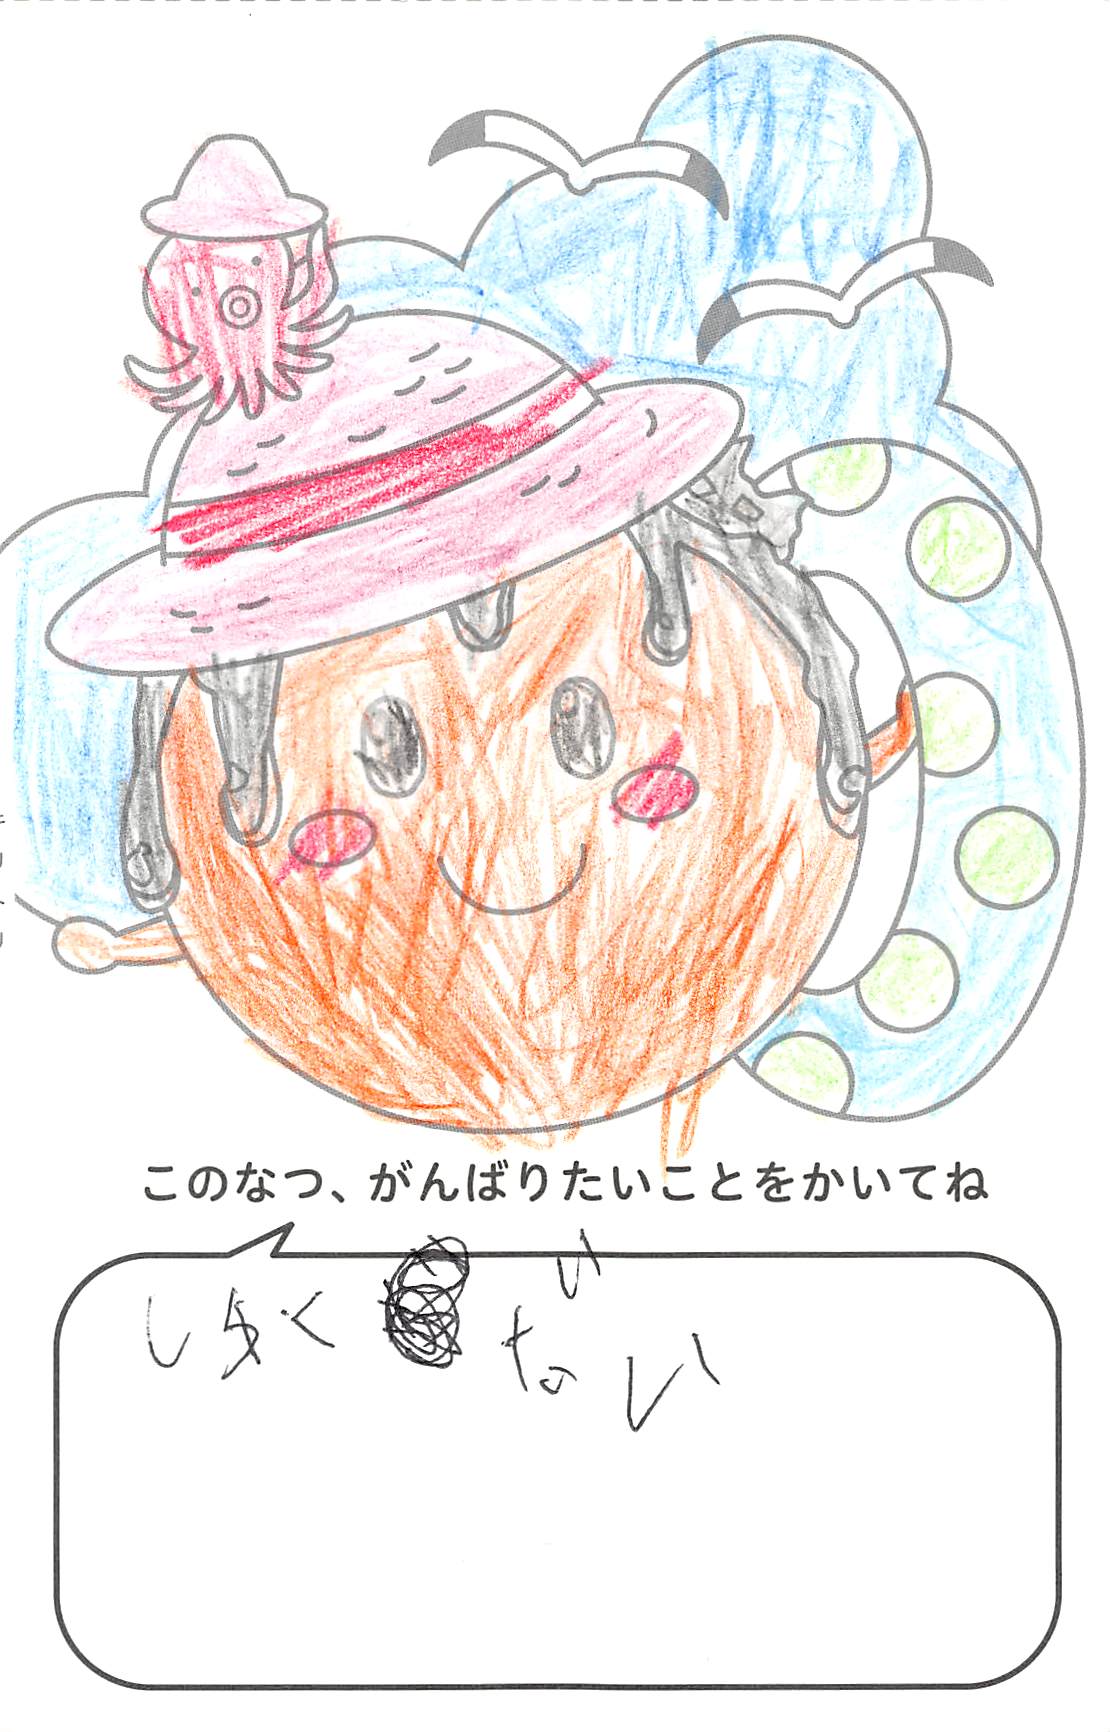 このなつ、がんばりたいことをかいてね
しゅくだい